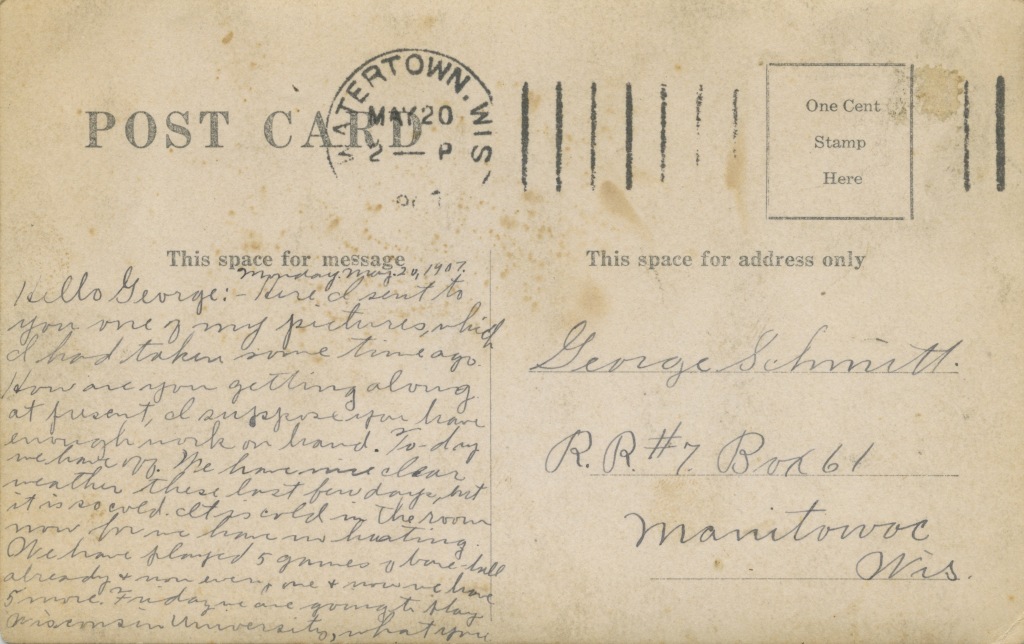 POST CARD
WATERTOWN. WIS
MAY 20
2 — P
One Cent
Stamp
Here
This space for message
This space for address only
Monday. May. 20, 1907.
Hello George:- Here I sent to
you one of my pictures, which
I had taken some time ago.
How are you getting along
at present, I suppose you have
enough work on hand. To-day
we have off. We have nice clear
weather these last few days, but
it is so cold. It is cold in the room
now for we have no heating.
We have played 5 games of base-ball
already & won every one & now we have
5 more. Friday we are going to play
Wisconsin University, what you
George Schmitt.
R. R. #7. Box 61
Manitowoc
Wis.